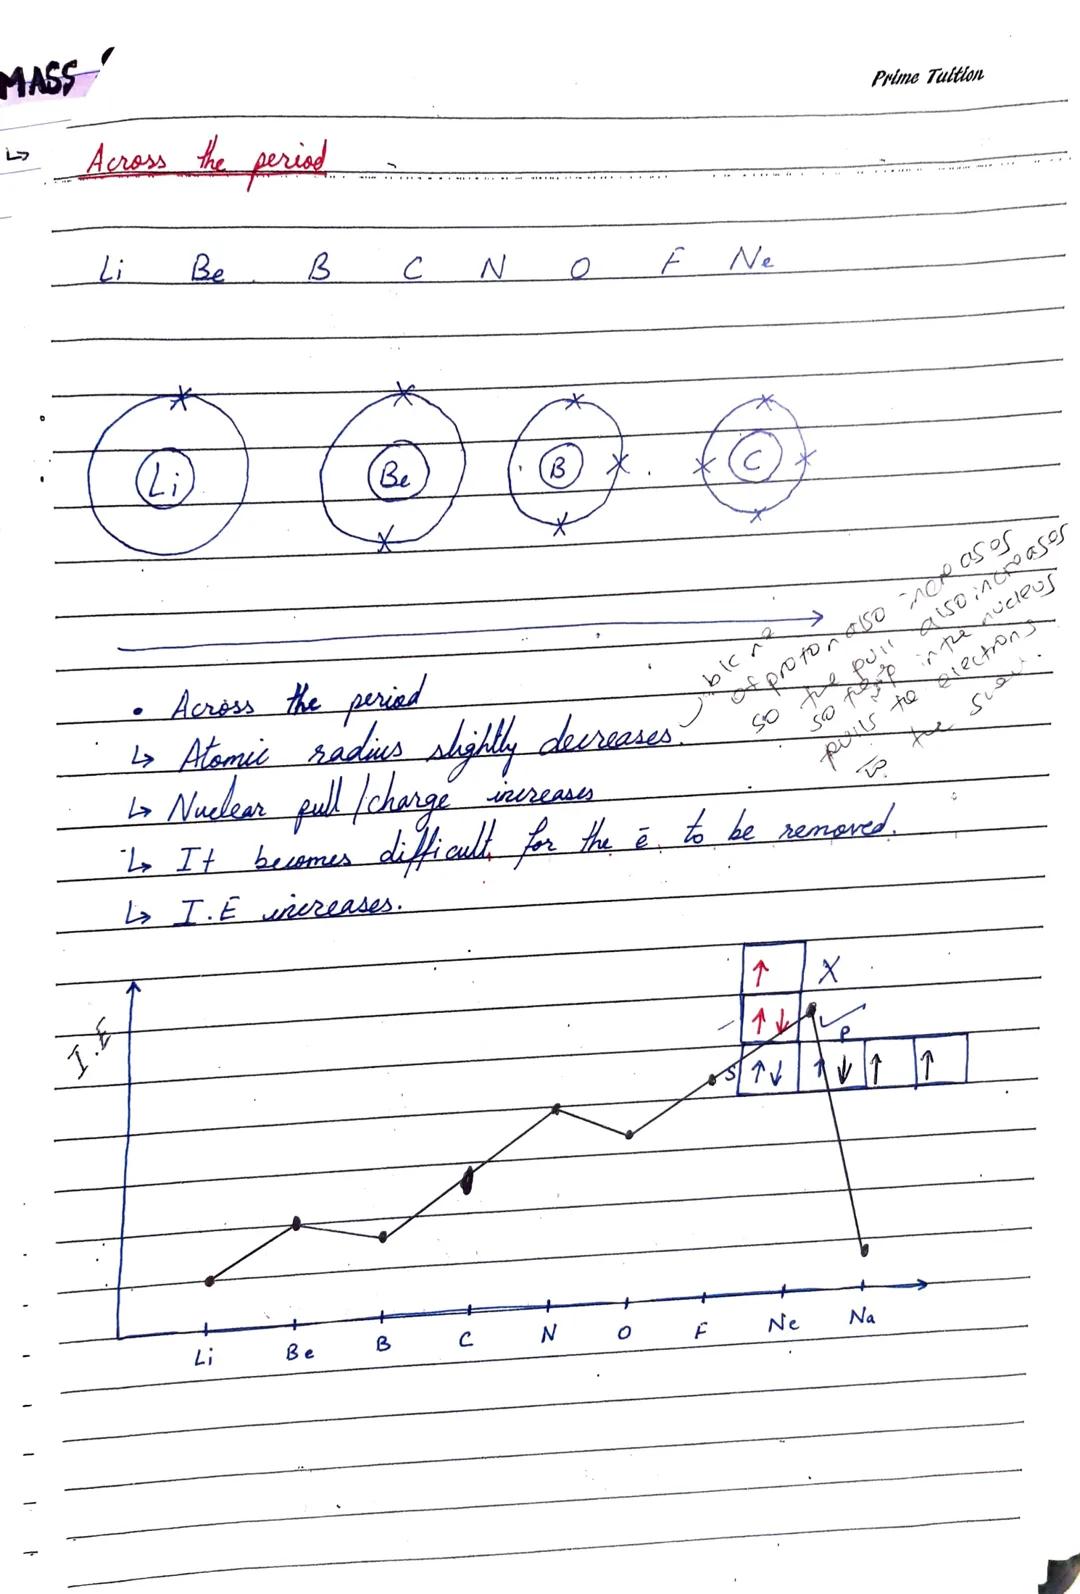 MASS
Prime Tuition
↳ Across the period
Li Be B C N O F Ne
Li Be B C
b/c nº
of proton also increases
so the pull also increases
so the p in the nucleus
pulls the electrons
to the
• Across the period
↳ Atomic radius slightly decreases.
↳ Nuclear pull / charge increases
↳ It becomes difficult for the ē to be removed.
↳ I.E increases.
I.E
↑ X
↑↓ ✓
P
S ↑↓ ↑↓ ↑ ↑
Li Be B C N O F Ne Na